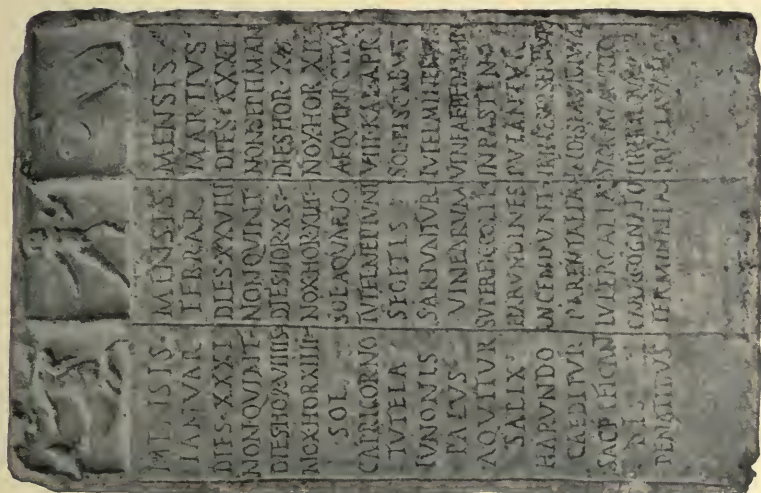 MENSIS
IANVAR
DIES·XXXI
NON·QVINT·
DIES·HOR·VIIII·S·
NOX·HOR·XIIII·
SOL
CAPRICORNO
TVTELA
IVNONIS
PALVS
AQVITVR
SALIX
HARVNDO
CAEDITVR
SACRIFICAN
DIS
PENATIBVS
MENSIS
FEBRAR
DIES·XXVIII
NON·QVINT
DIES·HOR·X·S·
NOX·HOR·XIII·
SOL·AQVARIO
TVTEL·NEPTVNI
SEGETES
SARIVNTVR
VINEARVM
SVPERFIC·COLIT
HARVNDINES
INCENDVNT
PARENTALIA
LVPERCALIA
CARA·COGNATIO
TERMINALIA
MENSIS
MARTIVS
DIES·XXXI
NON·SEPTIMAN
DIES·HOR·XII
NOX·HOR·XII
AEQVINOCTIVM
VIII·KAL·APR
SOL·PISCIBVS
TVTEL·MINERVAE
VINEAE·PEDAMIN
IN·PASTINO
PVTANTVR
TRIMESTR·SERITVR
ISIDIS·NAVIGIVM
SACR·MAMVRIO
LIBERAL
LAVATIO